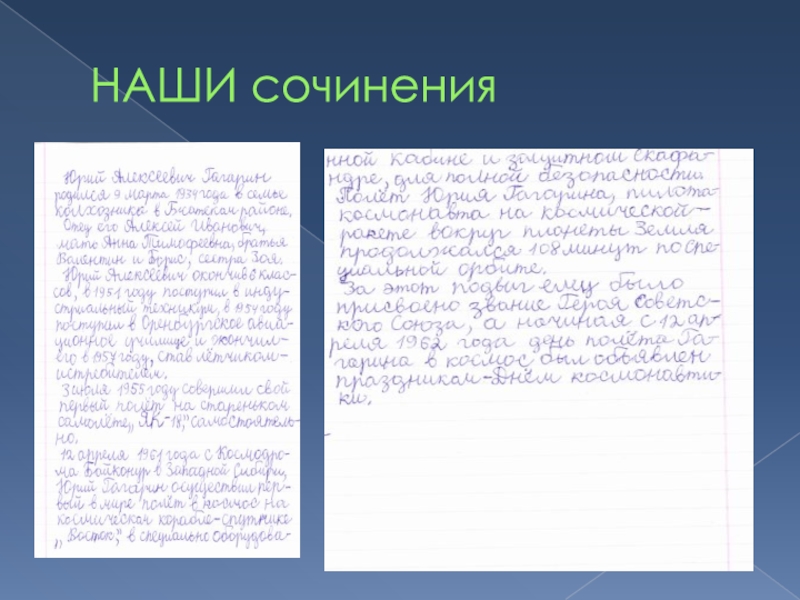 НАШИ сочинения
Юрий Алексеевич Гагарин
родился 9 марта 1934 года в семье
колхозника в Гжатском районе.
Отец его Алексей Иванович,
мать Анна Тимофеевна, братья
Валентин и Борис, сестра Зоя.
Юрий Алексеевич окончив 6 клас-
сов, в 1951 году поступил в инду-
стриальный техникум, в 1954 году
поступил в Оренбургское авиа-
ционное училище и окончил
его в 1957 году, став лётчиком-
истребителем.
3 июля 1955 году совершил свой
первый полёт на стареньком
самолёте „ЯК-18," самостоятель-
но.
12 апреля 1961 года с Космодро-
ма Байконур в Западной Сибири,
Юрий Гагарин осуществил пер-
вый в мире полёт в космос на
космическом корабле-спутнике
„Восток," в специально оборудова-
нной кабине и защитном скафа-
ндре, для полной безопасности.
Полёт Юрия Гагарина, пилота-
космонавта на космической-
ракете вокруг планеты Земля
продолжался 108 минут по спе-
циальной орбите.
За этот подвиг ему было
присвоено звание Героя Советс-
кого Союза, а начиная с 12 ап-
реля 1962 года день полёта Га-
гарина в космос был объявлен
праздником-Днём космонавти-
ки.